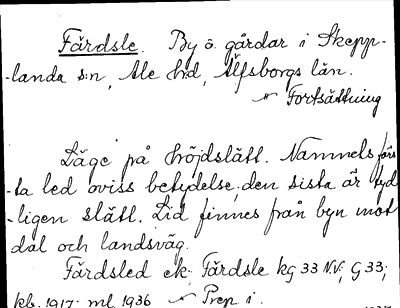 Färdsle. By o. gårdar i Skepp-
-landa s:n, Ale hd, Älfsborgs län.
Fortsättning
Läge på höjdslätt. Namnets förs
-ta led oviss betydelse, den sista är tyd
-ligen slätt. Lid finnes från byn mot
dal och landsväg.
Färdsled ek; Färdsle kg 33 N.V; G 33;
kb. 1917. ml 1936 Prep i.